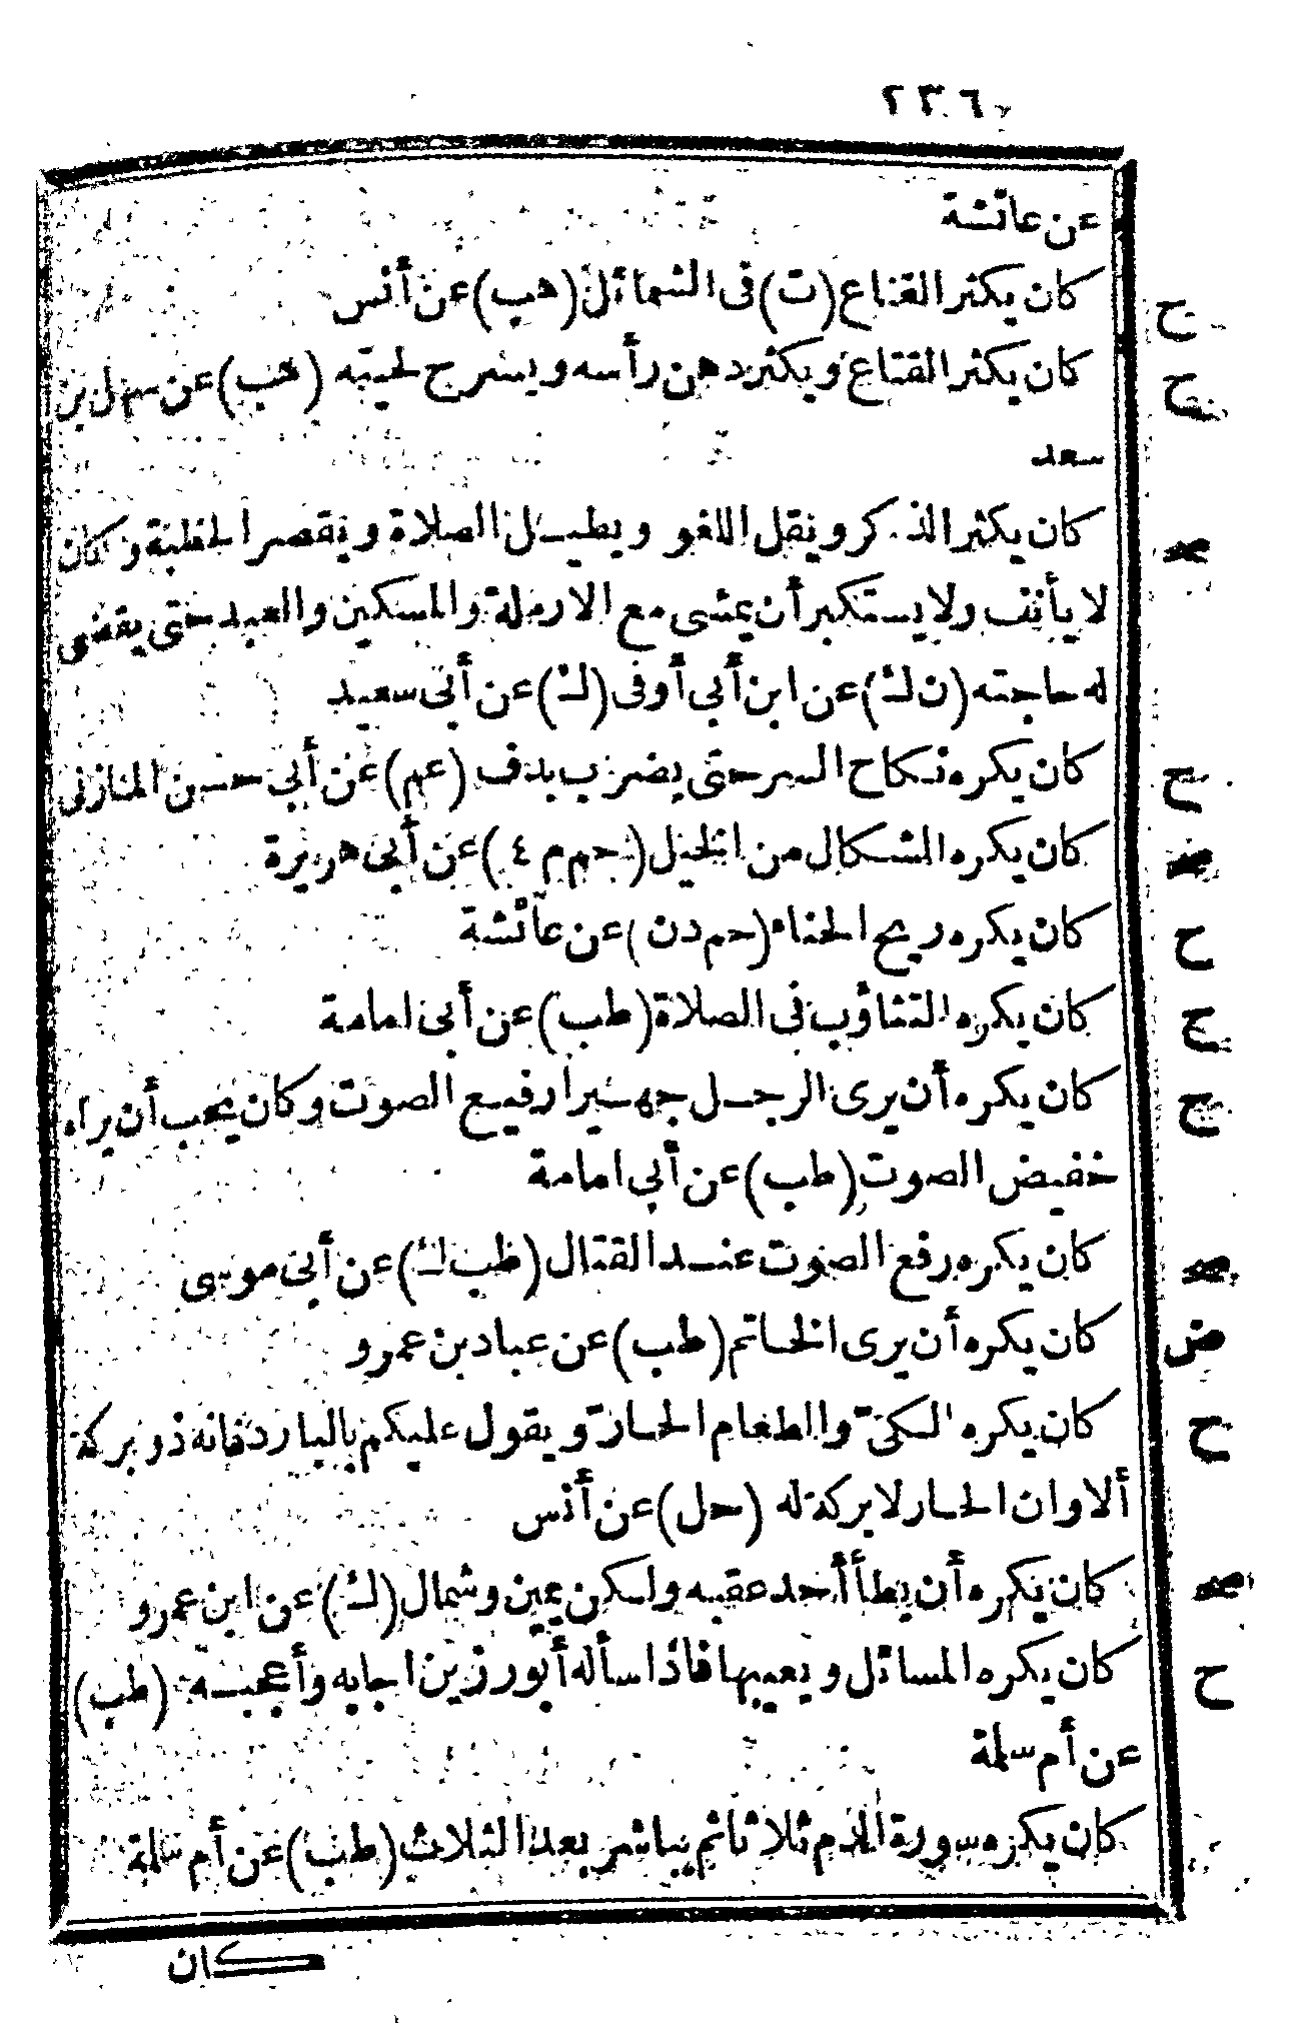 ٢٣٦
عن عائشة
ح كان يكثر القناع (ت) فى الشمائل (هب) عن أنس
ح كان يكثر القناع ويكثر دهن رأسه ويسرح لحيته (هب) عن سهل بن
سعد
صح كان يكثر الذكر ويقل اللغو ويطيل الصلاة ويقصر الخطبة وكان
لا يأنف ولا يستكبر أن يمشى مع الارملة والمسكين والعبد حتى يقضى
له حاجته (ن ك) عن ابن أبي أوفى (ك) عن أبى سعيد
ح كان يكره نكاح السر حتى يضرب بدف (عم) عن أبي حسن المازنى
صح كان يكره الشكال من الخيل (حم م ٤) عن أبى هريرة
ح كان يكره ريح الحناء (حم د ن) عن عائشة
ح كان يكره التثاؤب فى الصلاة (طب) عن أبى امامة
ح كان يكره أن يرى الرجل جهيرا رفيع الصوت وكان يحب أن يراه
خفيض الصوت (طب) عن أبي امامة
صح كان يكره رفع الصوت عند القتال (طب ك) عن أبى موسى
ض كان يكره أن يرى الخاتم (طب) عن عباد بن عمرو
ح كان يكره الكىّ والطعام الحارّ ويقول عليكم بالبارد فانه ذو بركة
ألا وان الحار لا بركة له (حل) عن أنس
صح كان يكره أن يطأ أحد عقبه ولكن يمين وشمال (ك) عن ابن عمرو
ح كان يكره المسائل ويعيبها فاذا سأله أبو رزين اجابه وأعجبه (طب)
عن أم سلمة
كان يكره سورة الدم ثلاثا ثم يباشر بعد الثلاث (طب) عن أم سلمة
كان